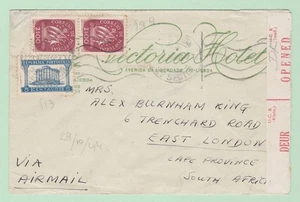 CORREIO
CORREIO
Victoria Hotel
AVENIDA DA LIBERDADE, LISBOA
MRS.
ALEX BURNHAM KING
6 TRENCHARD ROAD
EAST LONDON
CAPE PROVINCE
SOUTH AFRICA
VIA
AIRMAIL
OPENED
DEUR